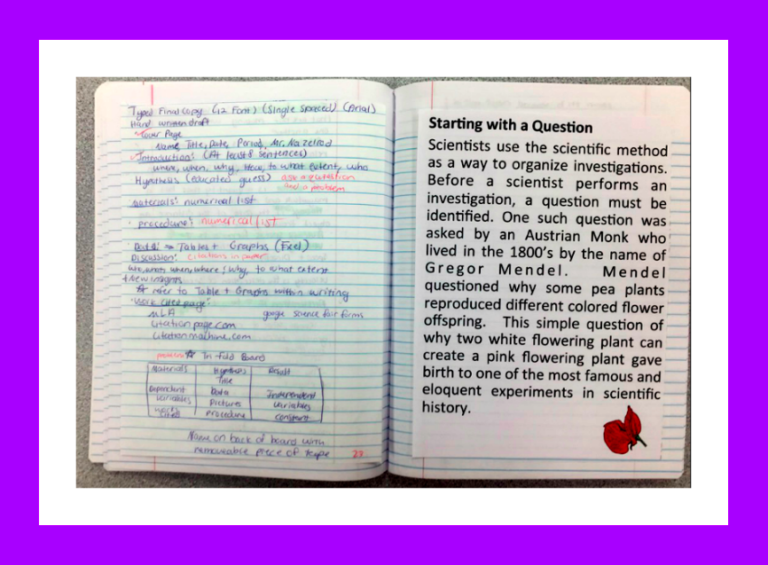 Typed Final Copy (12 Font) (Single Spaced) (Arial)
Hand written draft
Cover Page
Name Title, Date, Period, Mr. Nazelrod
Introduction: (At least 8 sentences)
where, when, why, How, to what extent, who
Hypothesis (educated guess) ask a question
and a problem
materials: numerical list
procedure: numerical list
Tables + Graphs (Excel)
Discussion: citations in paper
who, what, when, where, why, to what extent
refer to Table + Graphs within writing
"Work cited page"
MLA google science fair forms
citationpage.com
citationmachine.com
Tri-fold Board
Materials Hypothesis Result
Title
Dependent Data Independent
Variables Pictures Variables
procedure constant
Name on back of board with
removable piece of tape 23
Starting with a Question
Scientists use the scientific method
as a way to organize investigations.
Before a scientist performs an
investigation, a question must be
identified. One such question was
asked by an Austrian Monk who
lived in the 1800's by the name of
Gregor Mendel. Mendel
questioned why some pea plants
reproduced different colored flower
offspring. This simple question of
why two white flowering plant can
create a pink flowering plant gave
birth to one of the most famous and
eloquent experiments in scientific
history.